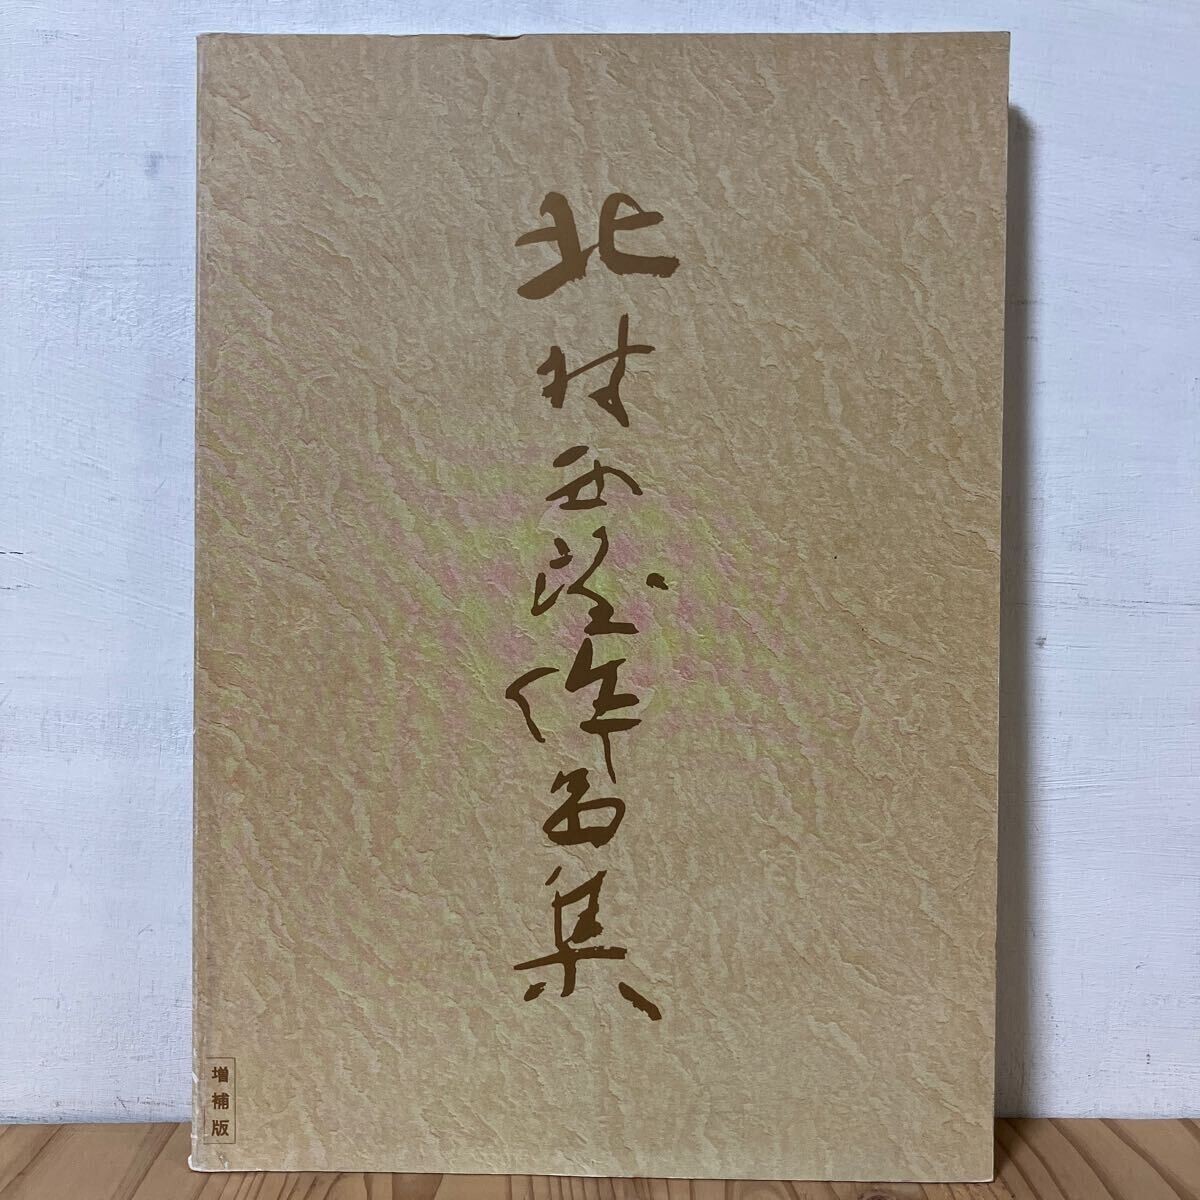 北村西望作品集
増補版